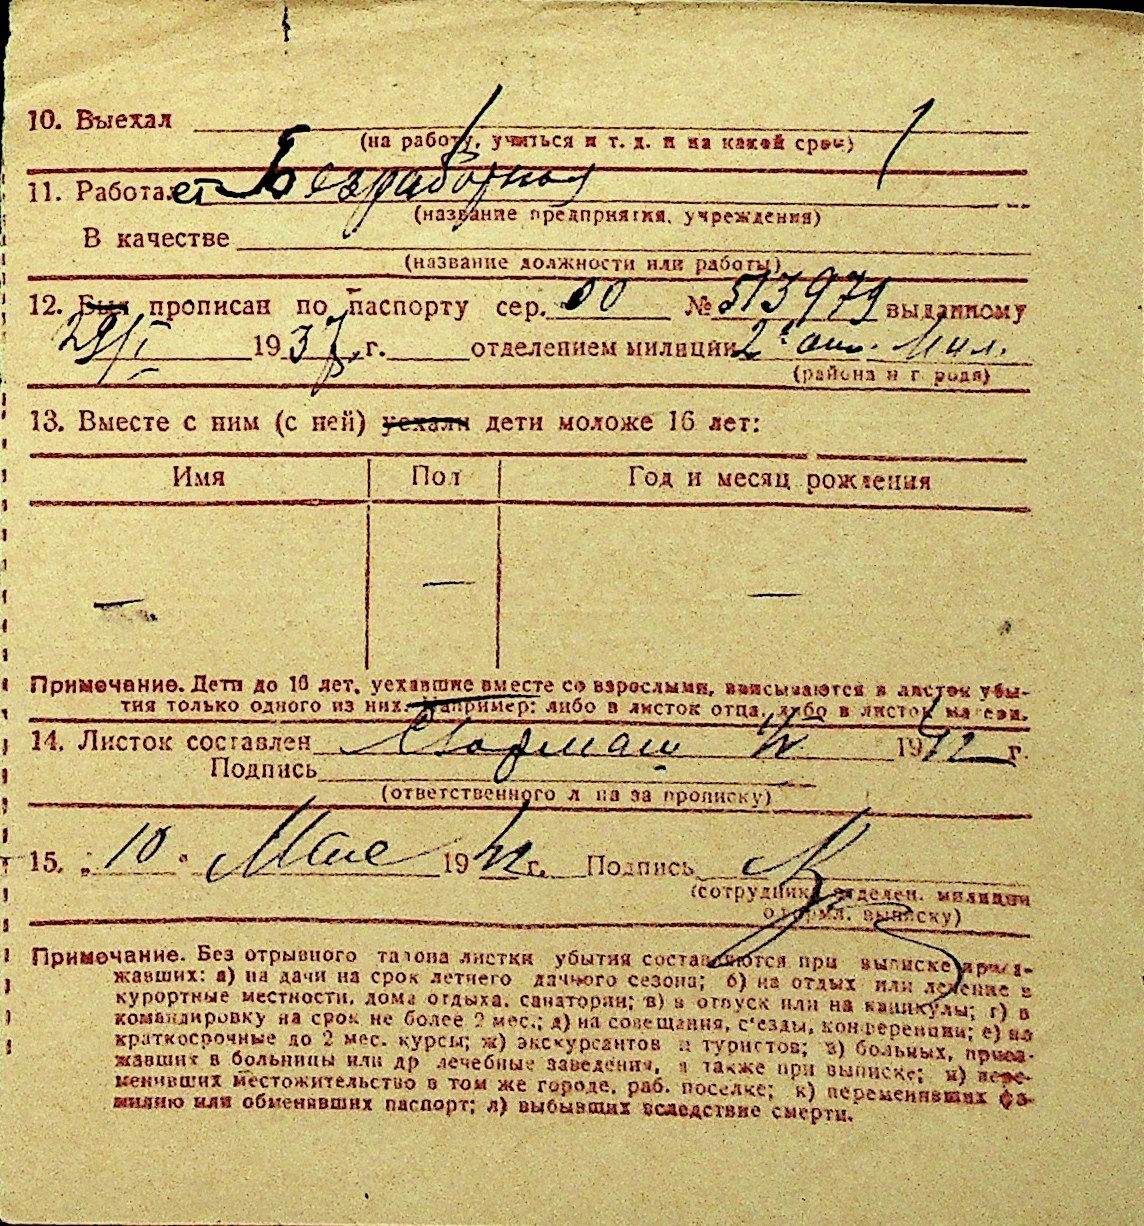 10. Выехал
(на работу, учиться и т. д. и на какой срок)
11. Работает Безработная
(название предприятия, учреждения)
В качестве
(название должности или работы)
12. Был прописан по паспорту сер. 00 № 513979 выданному
1937 г. отделением милиции 2е Мил.
(района и города)
13. Вместе с ним (с ней) уехали дети моложе 16 лет:
Имя Пол Год и месяц рождения
— — —
Примечание. Дети до 16 лет, уехавшие вместе со взрослыми, вписываются в листок убы-
тия только одного из них. Например: либо в листок отца, либо в листок матери.
14. Листок составлен 1942 г.
Подпись
(ответственного лица за прописку)
15. „10" Мая 1942 г. Подпись
(сотрудника отделен. милиции
оформл. выписку)
Примечание. Без отрывного талона листки убытия составляются при выписке приез-
жавших: а) на дачи на срок летнего дачного сезона; б) на отдых или лечение в
курортные местности, дома отдыха, санатории; в) в отпуск или на каникулы; г) в
командировку на срок не более 2 мес.; д) на совещания, с'езды, конференции; е) на
краткосрочные до 2 мес. курсы; ж) экскурсантов и туристов; з) больных, приез-
жавших в больницы или др лечебные заведения, а также при выписке; и) пере-
менивших местожительство в том же городе, раб. поселке; к) переменивших фа-
милию или обменявших паспорт; л) выбывших вследствие смерти.